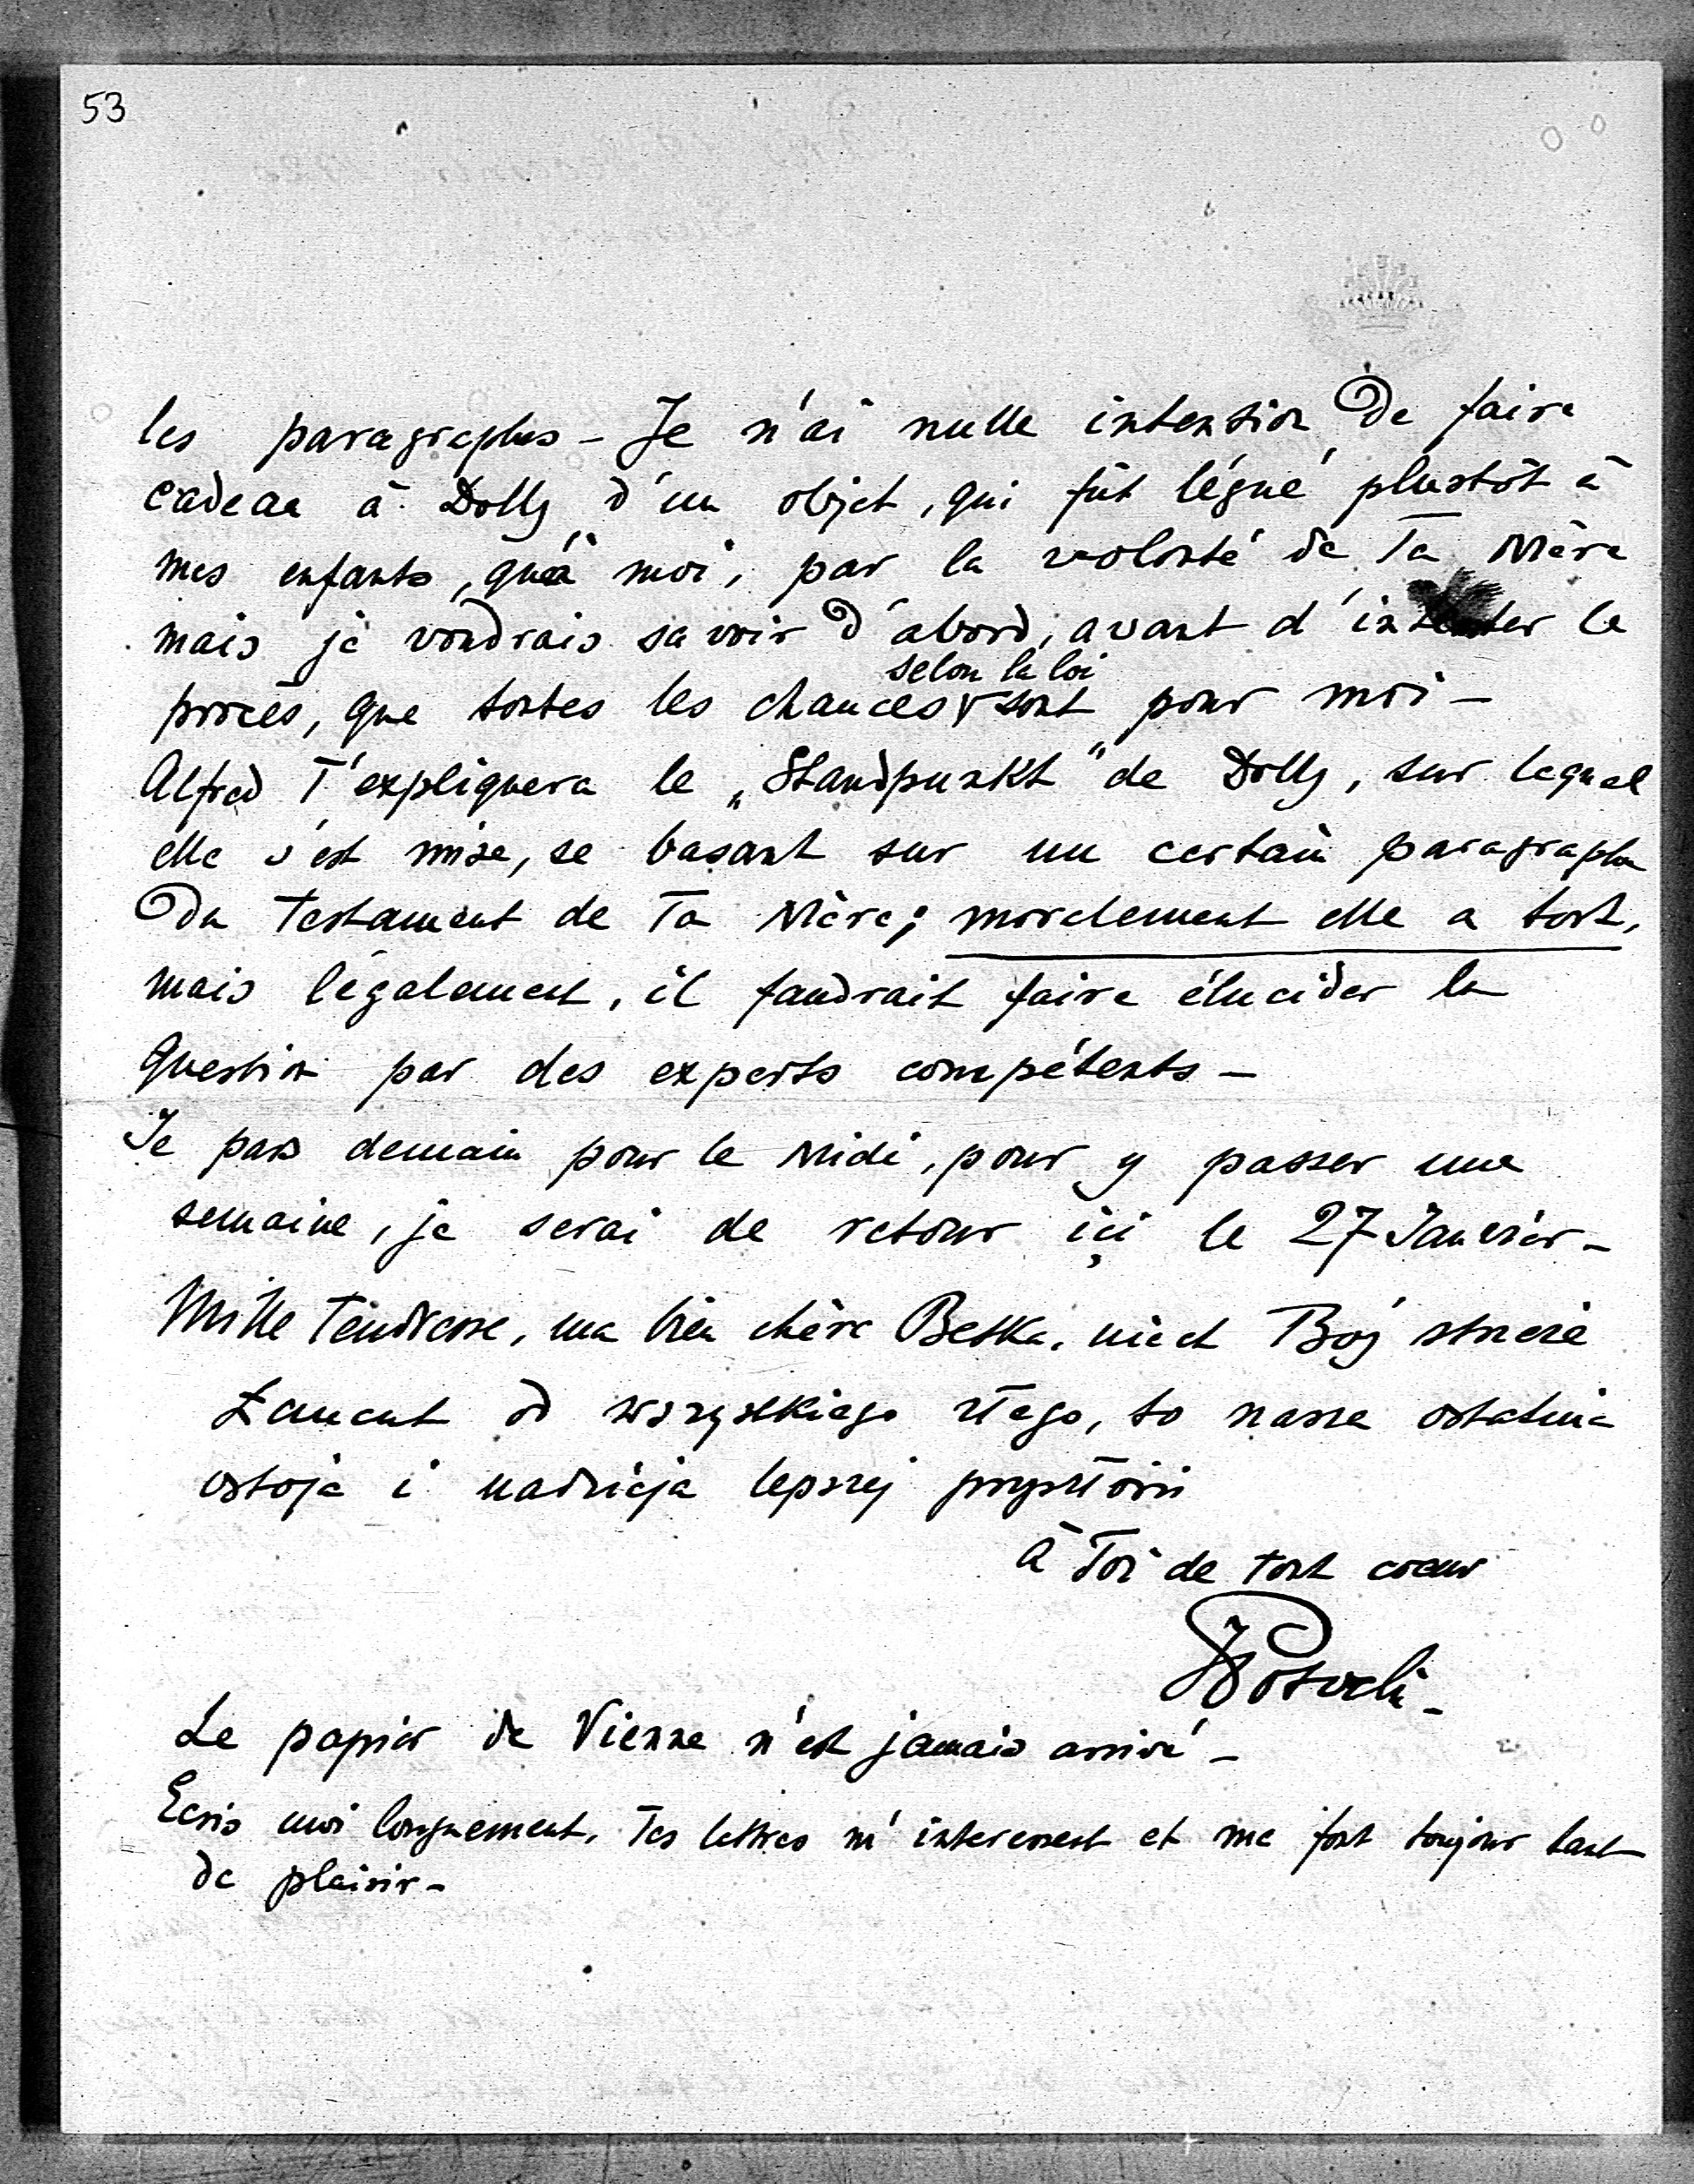 53
les paragraphes - Je n'ai nulle intention de faire
cadeau à Dolly d'un objet, qui fût légué plustôt à
mes enfants, qu'à moi, par la volonté de Ta Mère
mais je voudrais savoir d'abord, avant d'intenter le
selon la loi
procès, que toutes les chances sont pour moi -
Alfred T'expliquera le „Standpunkt" de Dolly, sur lequel
elle s'est mise, se basant sur un certain paragraphe
du testament de Ta Mère; moralement elle a tort,
mais légalement, il faudrait faire élucider la
question par des experts compétents -
Je pars demain pour le Midi, pour y passer une
semaine, je serai de retour içi le 27 Janvier -
Mille Tendresse, ma bien chère Betka, niech Bóg strzeże
Łancut od wszystkiego złego, to nasza ostatnia
ostoja i nadzieja lepszej przyszłości
à Toi de tout coeur
Potocki -
Le papier de Vienne n'est jamais arrivé -
Ecris moi longuement, Tes lettres m'interessent et me font toujour tant
de plaisir -